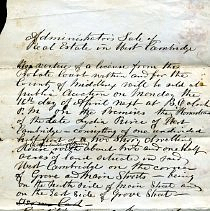 Administrator's Sale of
Real Estate in West Cambridge
By virtue of a license from the
Probate Court within and for the
County of Middlesex will be sold at
Public Auction on Monday the
16th day of April next at 3 O'clock
P. M. on the Premises the Homestead
of the late Lydia Peirce of West
Cambridge consisting of one undivided
half of a two Story dwelling
House with about two and one half
acres of land situate in said
West Cambridge on the corner
of Grove and Main Streets being
on the North side of Main Street and
on the East side of Grove Street